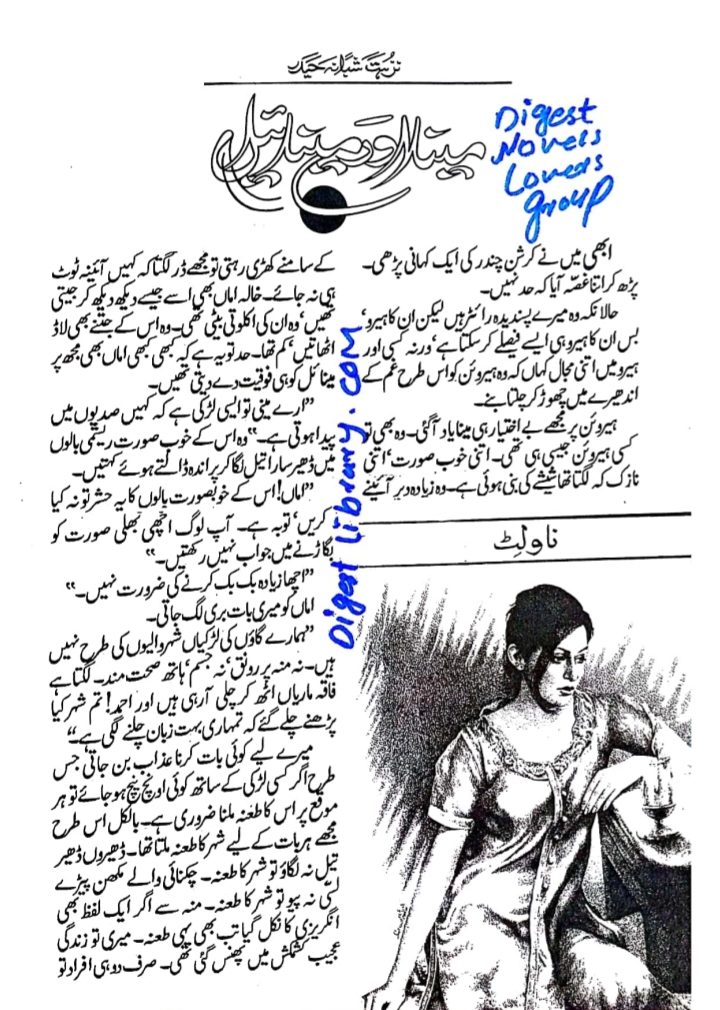 نزہت شبانہ حیدر
مینا اور مینا ئیل
Digest
Novels
Lovers
group
ابھی میں نے کرشن چندر کی ایک کہانی پڑھی۔
پڑھ کر اتنا غصّہ آیا کہ حد نہیں۔
حالانکہ وہ میرے پسندیدہ رائٹر ہیں لیکن ان کا ہیرو‘
بس ان کا ہیرو ہی ایسے فیصلے کر سکتا ہے‘ ورنہ کسی اور
ہیرو میں اتنی مجال کہاں کہ وہ ہیروئن کو اس طرح غم کے
اندھیرے میں چھوڑ کر چلتا بنے۔
ہیروئن پر مجھے بے اختیار ہی مینا یاد آگئی۔ وہ بھی تو
کسی ہیروئن جیسی ہی تھی۔ اتنی خوب صورت‘ اتنی
نازک کہ لگتا تھا شیشے کی بنی ہوئی ہے۔ وہ زیادہ دیر آئینے
ناولٹ
Digest Library.com
کے سامنے کھڑی رہتی تو مجھے ڈر لگتا کہ کہیں آئینہ ٹوٹ
ہی نہ جائے۔ خالہ اماں بھی اسے جیسے دیکھ دیکھ کر جیتی
تھیں‘ وہ ان کی اکلوتی بیٹی تھی۔ وہ اس کے جتنے بھی لاڈ
اٹھاتیں‘ کم تھا۔ حد تو یہ ہے کہ کبھی کبھی اماں بھی مجھ پر
مینا ئل کو ہی فوقیت دے دیتی تھیں۔
”ارے مینی تو ایسی لڑکی ہے کہ کہیں صدیوں میں
پیدا ہوتی ہے۔“ وہ اس کے خوب صورت ریشمی بالوں
میں ڈھیر سارا تیل لگا کر پراندہ ڈالتے ہوئے کہتیں۔
”اماں! اس کے خوبصورت بالوں کا یہ حشر تو نہ کیا
کریں‘ توبہ ہے۔ آپ لوگ اچھی بھلی صورت کو
بگاڑنے میں جواب نہیں رکھتیں۔“
”اچھا زیادہ بک بک کرنے کی ضرورت نہیں۔“
اماں کو میری بات بری لگ جاتی۔
”ہمارے گاؤں کی لڑکیاں شہر والیوں کی طرح نہیں
ہیں۔ نہ منہ پر رونق‘ نہ جسم‘ ہاتھ صحت مند۔ لگتا ہے
فاقہ ماریاں اٹھ کر چلی آ رہی ہیں اور احمد! تم شہر کیا
پڑھنے چلے گئے کہ تمہاری بہت زبان چلنے لگی ہے۔“
میرے لیے کوئی بات کرنا عذاب بن جاتی‘ جس
طرح اگر کسی لڑکی کے ساتھ کوئی اونچ نیچ ہو جائے تو ہر
موقع پر اس کا طعنہ ملنا ضروری ہے۔ بالکل اس طرح
مجھے ہر بات کے لیے شہر کا طعنہ ملتا تھا۔ ڈھیروں ڈھیر
تیل نہ لگاؤ تو شہر کا طعنہ۔ چکنائی والے مکھن پیڑے
لسی نہ پیو تو شہر کا طعنہ۔ منہ سے اگر ایک لفظ بھی
انگریزی کا نکل گیا تب بھی یہی طعنہ۔ میری تو زندگی
عجیب کشمکش میں پھنس گئی تھی۔ صرف دو ہی افراد تو